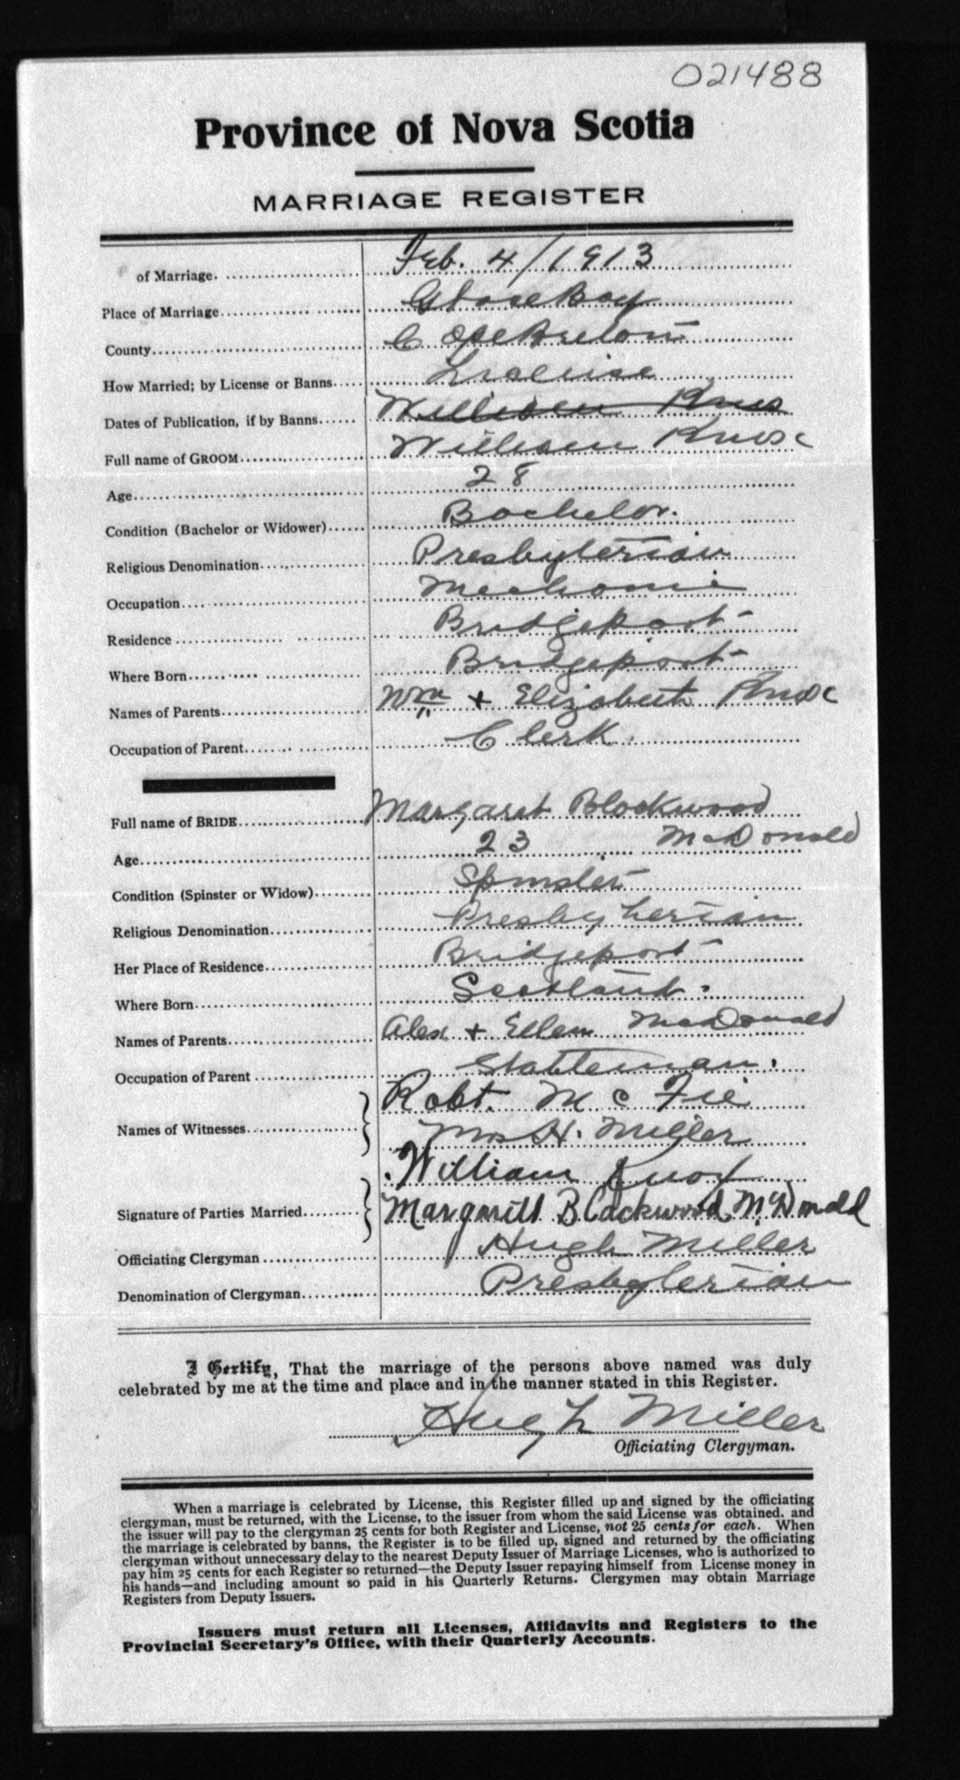 021488
Province of Nova Scotia
MARRIAGE REGISTER
of Marriage. Feb. 4/1913
Place of Marriage Glace Bay
County C Ape Breton
How Married; by License or Banns License
Dates of Publication, if by Banns William Knox
Full name of GROOM William Knox
Age 28
Condition (Bachelor or Widower) Bachelor.
Religious Denomination Presbyterian
Occupation Mechanic
Residence Bridgeport
Where Born Bridgeport
Names of Parents Wm + Elizabeth Knox
Occupation of Parent Clerk.
Full name of BRIDE Margaret Blackwood
McDonald
Age 23
Condition (Spinster or Widow) Spinster
Religious Denomination Presbyterian
Her Place of Residence Bridgeport
Where Born Scotland.
Names of Parents Alex + Ellen McDonald
Occupation of Parent Stableman.
Names of Witnesses Robt. McFie
Mrs H. Miller
Signature of Parties Married William Knox
Margaritt Blackwood McDonald
Officiating Clergyman Hugh Miller
Denomination of Clergyman Presbyterian
I Certify, That the marriage of the persons above named was duly
celebrated by me at the time and place and in the manner stated in this Register.
Hugh Miller
Officiating Clergyman.
When a marriage is celebrated by License, this Register filled up and signed by the officiating
clergyman, must be returned, with the License, to the issuer from whom the said License was obtained. and
the issuer will pay to the clergyman 25 cents for both Register and License, not 25 cents for each. When
the marriage is celebrated by banns, the Register is to be filled up, signed and returned by the officiating
clergyman without unnecessary delay to the nearest Deputy Issuer of Marriage Licenses, who is authorized to
pay him 25 cents for each Register so returned—the Deputy Issuer repaying himself from License money in
his hands—and including amount so paid in his Quarterly Returns. Clergymen may obtain Marriage
Registers from Deputy Issuers.
Issuers must return all Licenses, Affidavits and Registers to the
Provincial Secretary's Office, with their Quarterly Accounts.